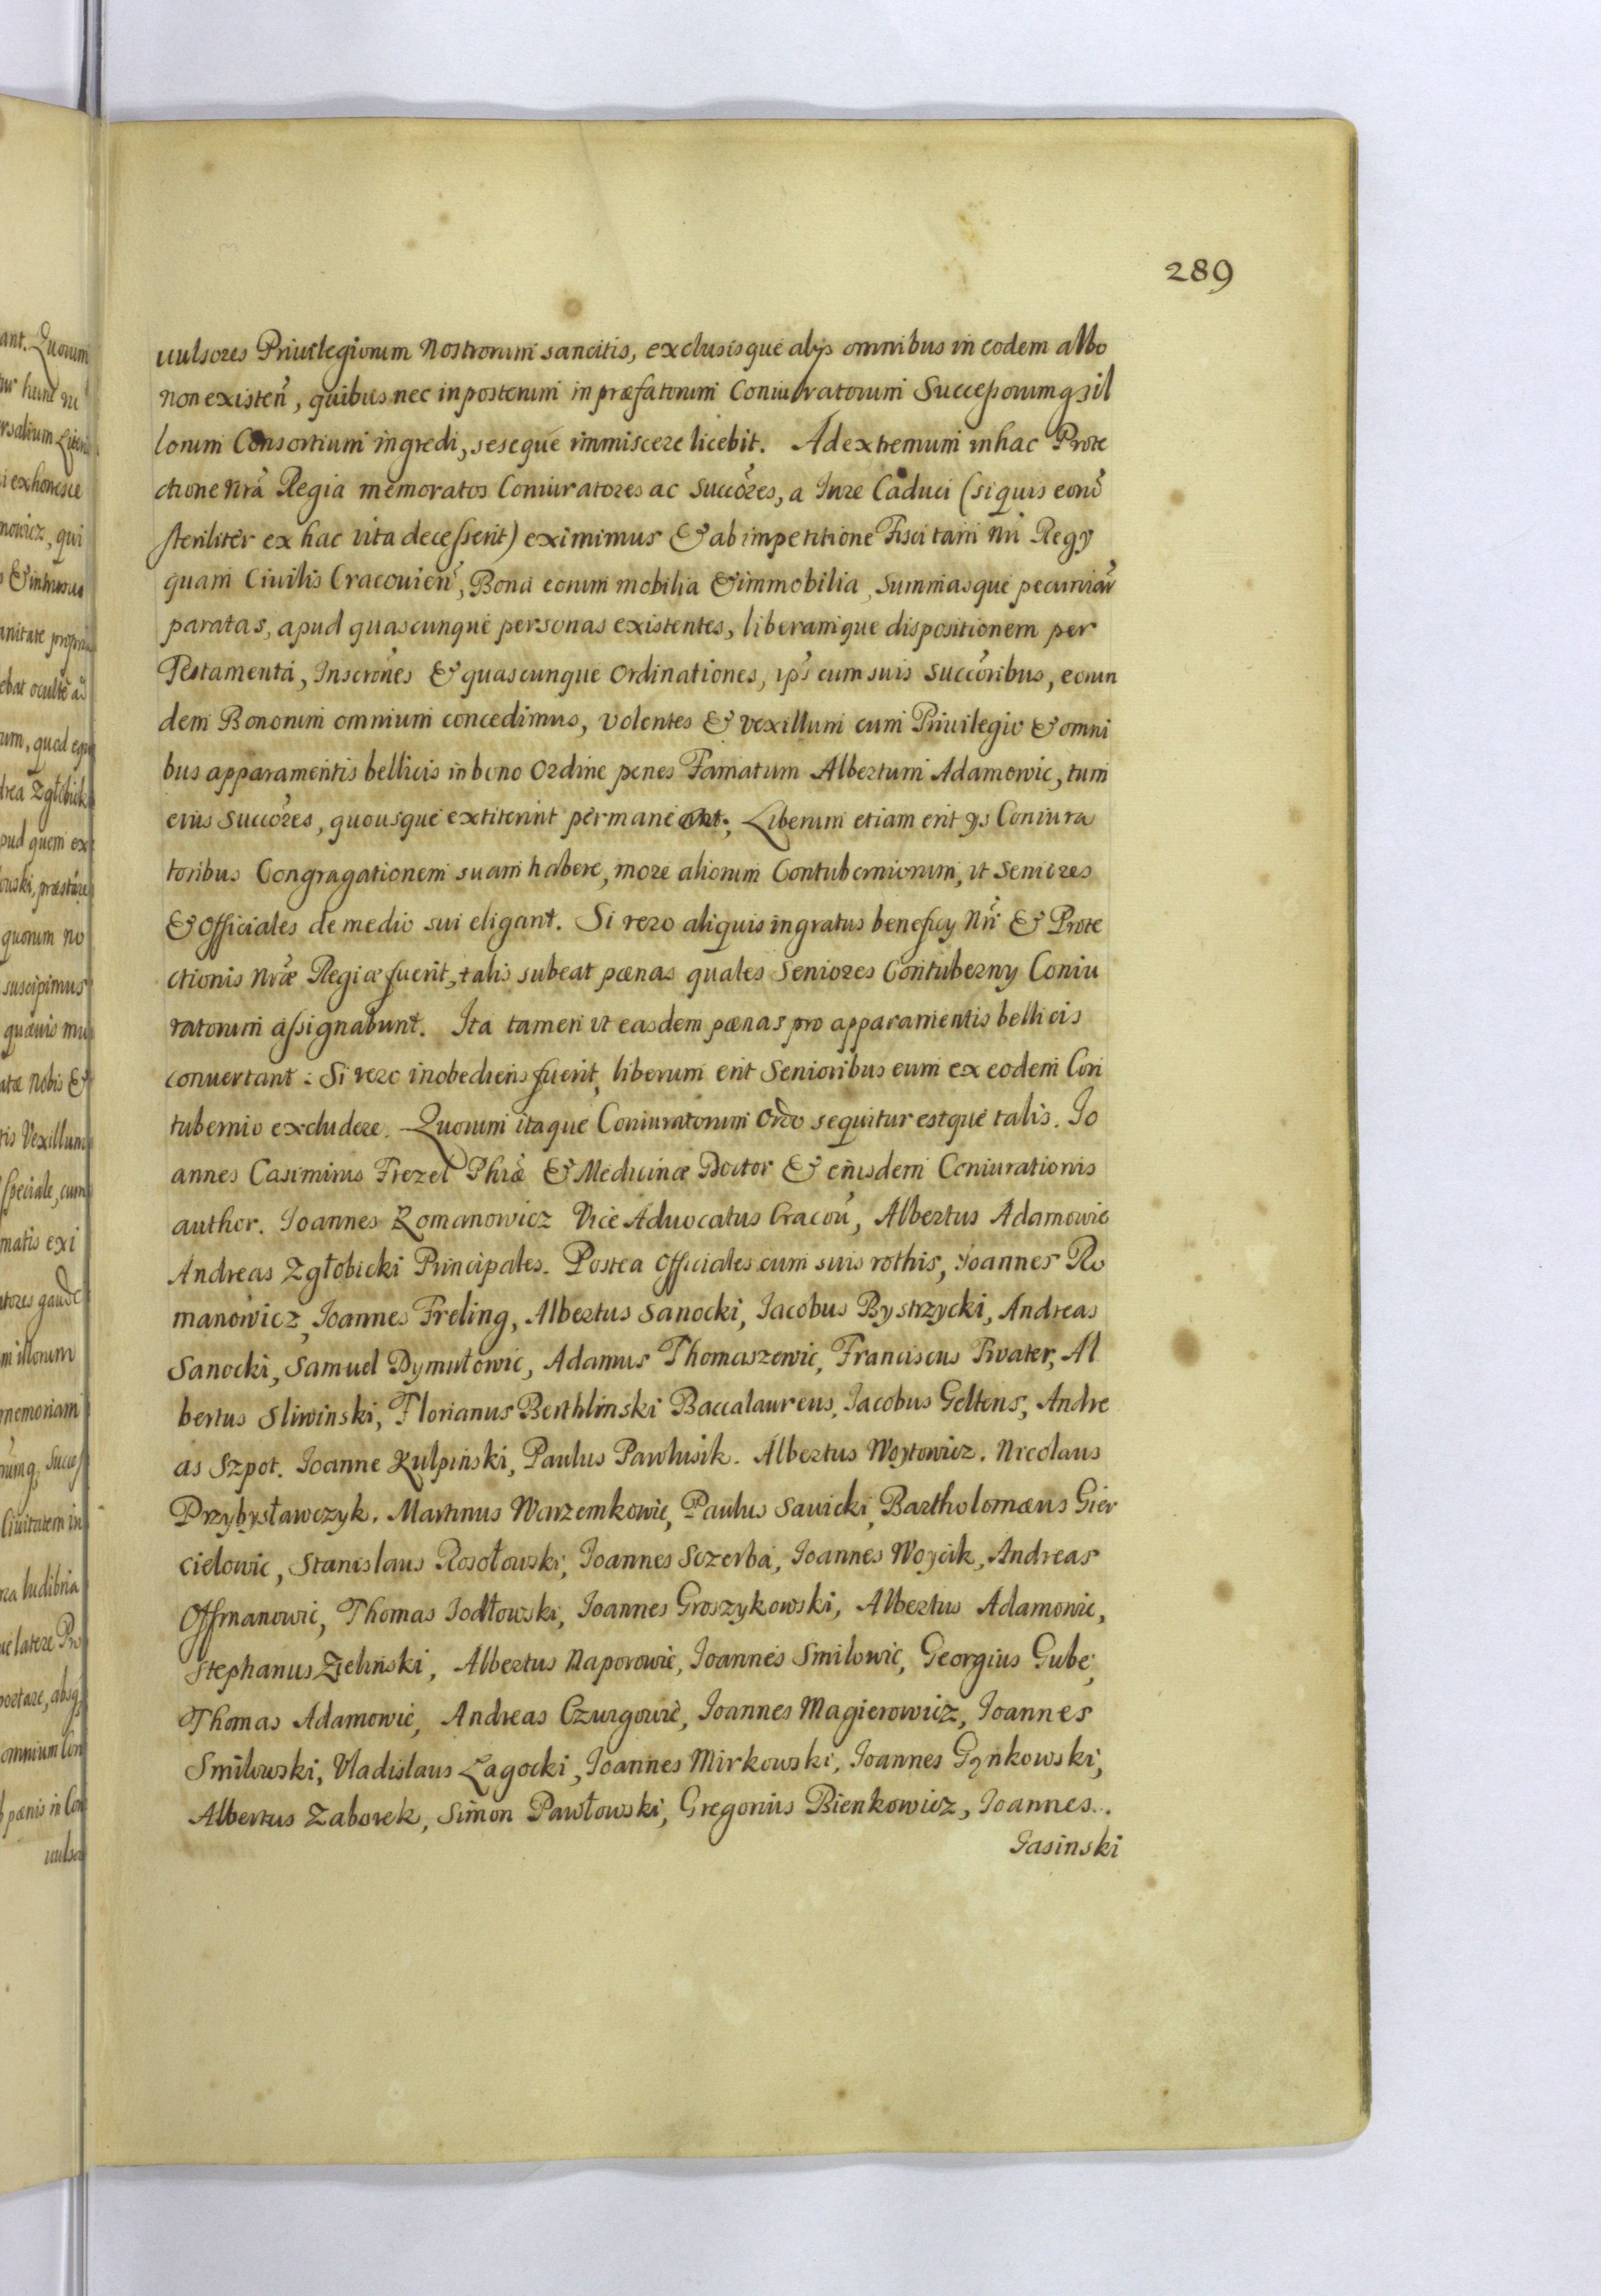 289
uulsores Priuilegiorum Nostrorum sancitis, exclusisque alys omnibus in eodem albo
non existeñ, quibus nec inposterum in præfatorum Coniuratorum Successorumq3 il
lorum Consortium ingredi, seseque immiscere licebit. Ad extremum in hac Prote
ctione Nrã Regia memoratos Coniuratores ac Succõres, a Iure Caduci (siquis eorũ
steriliter ex hac vita decesserit) eximimus & ab impetitione Fisci tam Nri Regy
quam Ciuilis Cracouieñ, Bona eorum mobilia & immobilia, Summasque pecuniar̃
paratas, apud quascunque personas existentes, liberamque dispositionem per
Testamenta, Inscrõnes & quascunque Ordinationes, ips̃ cum suis Succõribus, eorun
dem Bonorum omnium concedimus, volentes & vexillum cum Priuilegio & omni
bus apparamentis bellicis in bono Ordine penes Famatum Albertum Adamowic, tum
eius Succõres, quousque extiterint permaneant. Liberum etiam erit ys Coniura
toribus Congragationem suam habere, more aliorum Contuberniorum, ut Seniores
& Officiales de medio sui eligant. Si vero aliquis ingratus beneficy Nri & Prote
ctionis Nræ Regiæ fuerit, talis subeat pœnas quales Seniores Contuberny Coniu
ratorum assignabunt. Ita tamen ut easdem pœnas pro apparamentis bellicis
conuertant: Si vero inobediens fuerit, liberum erit Senioribus eum ex eodem Con
tubernio excludere. Quorum itaque Coniuratorum Ordo sequitur estque talis. Io
annes Casimirus Frezel Phiæ & Medicinæ Doctor & eiusdem Coniurationis
author. Ioannes Romanowicz Vice Aduocatus Cracoũ, Albertus Adamowic
Andreas Zgłobicki Principales. Postea Officiales cum suis rothis, Ioannes Ro
manowicz, Ioannes Freling, Albertus Sanocki, Iacobus Bystrzycki, Andreas
Sanocki, Samuel Dymutowic, Adamus Thomaszewic, Franciscus Rwater, Al
bertus Sliwinski, Florianus Berthlinski Baccalaureus, Iacobus Geltens, Andre
as Szpot. Ioanne Kulpinski, Paulus Pawlusik. Albertus Woytowicz. Nicolaus
Przybysławczyk. Martinus Warzemkowic, Paulus Sawicki, Bartholomæus Gier
cielowic, Stanislaus Rosołowski, Ioannes Sczerba, Ioannes Woycik, Andreas
Offmanowic, Thomas Iodłowski, Ioannes Groszykowski, Albertus Adamowic,
Stephanus Zielinski, Albertus Naporowic, Ioannes Smilowic, Georgius Gube,
Thomas Adamowic, Andreas Czurgowic, Ioannes Magierowicz, Ioannes
Smilowski, Vladislaus Zagocki, Ioannes Mirkowski, Ioannes Gynkowski,
Albertus Zaborek, Simon Pawłowski, Gregorius Bienkowicz, Ioannes.
Iasinski